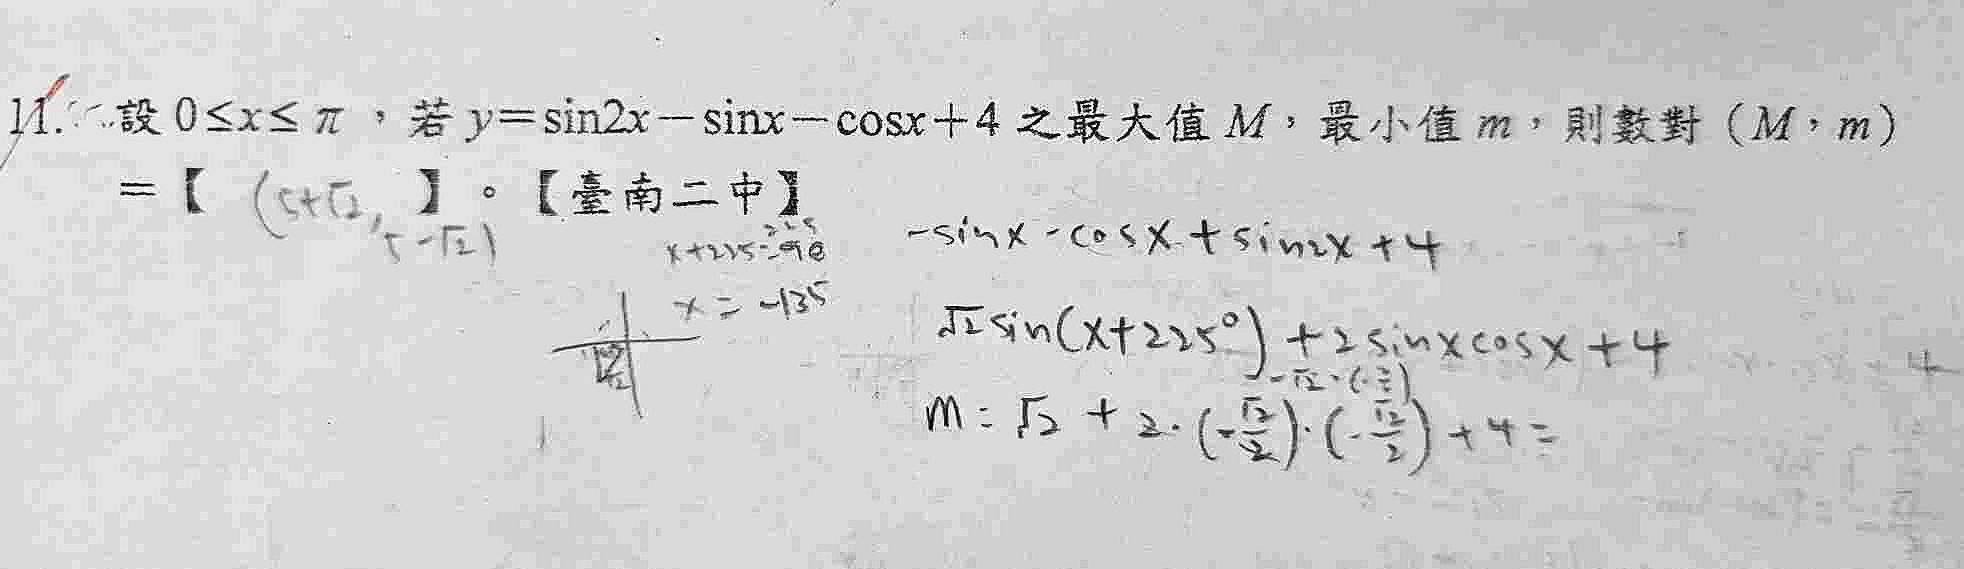 11. 設 0≤x≤π，若 y=sin2x－sinx－cosx＋4 之最大值 M，最小值 m，則數對（M，m）
＝【 (5+√2, 5-√2) 】。【臺南二中】
x+225=90
x = -135
-sinx-cosx+sin2x+4
√2sin(x+225°)+2sinxcosx+4
m = √2 + 2·(-√2/2)·(-√2/2)+4=